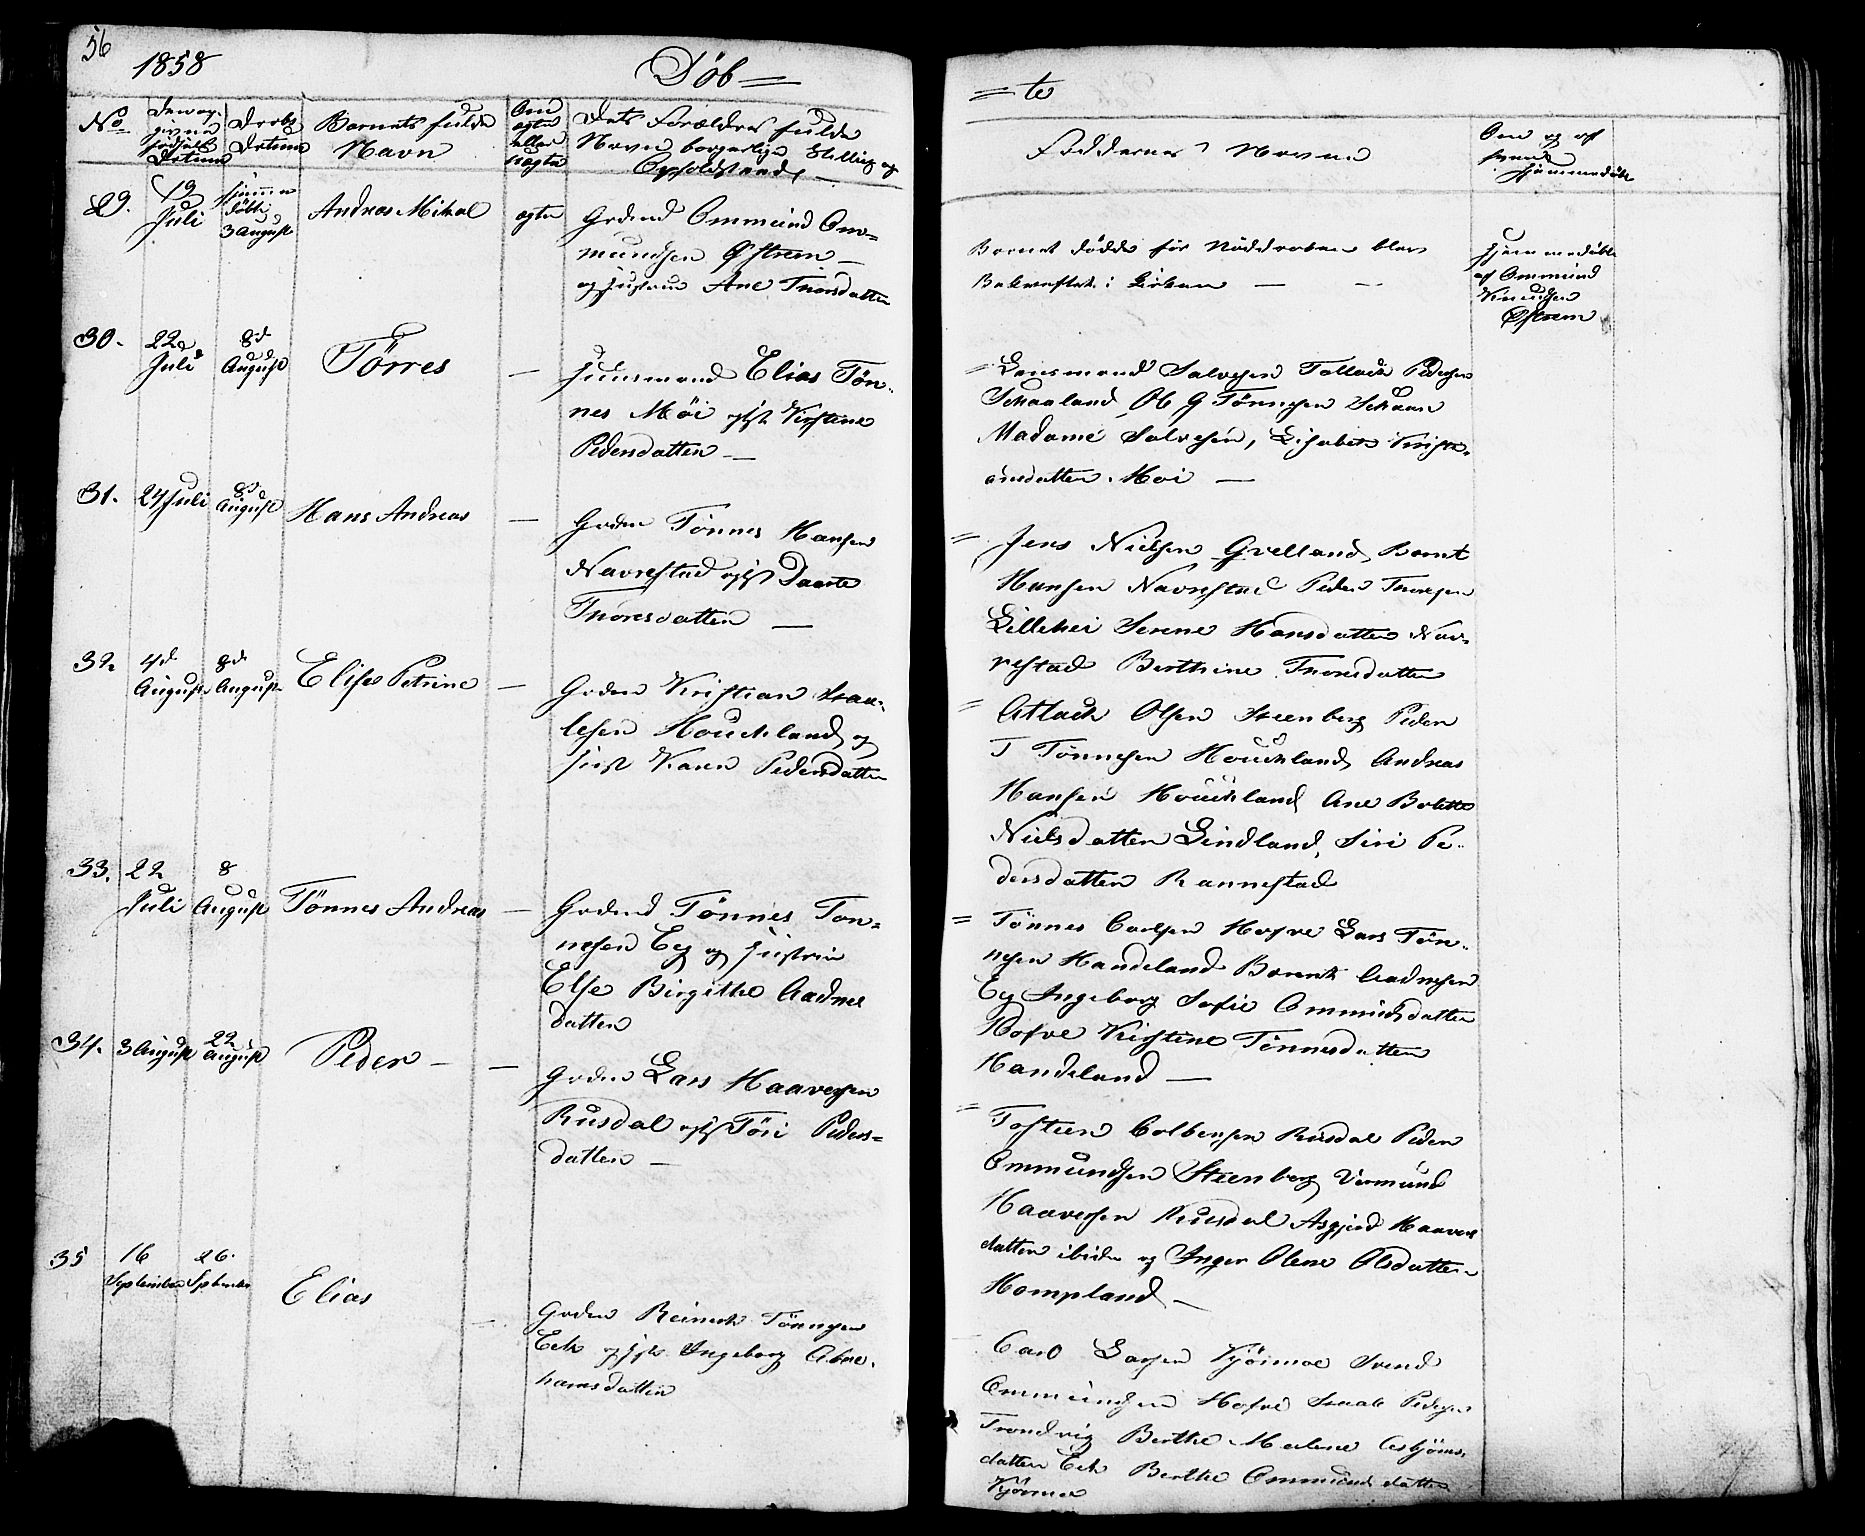 56
1858
Döb=
=te
No
Barnets fulde
Navn
Dets Forældres fulde
Navn borgerlige Stilling og
Opholdssted
Faddernes Navne
Om og af
hvem
hjemmedöbt
29.
19
Juli
hjemme
döbt
3 August
Andreas Mikal
ægte
Gdmd Ommund Om=
mundsen Østrem
og Hustrue Ane Thorsdatter
Barnet dödde för
i Kirken
hjemmedöbt
af Ommund
Knudsen
Østrem
30.
22de
Juli
8d
August
Törres
—
Huusmand Elias Tön-
nes Möi og H Kirstine
Pedersdatter —
= Lensmand Salvesen Tollack Pedersen
Skaaland, Ob G Tönnesen Skaar
Madame Salvesen, Lisabet Kristi-
ansdatter Moi —
31.
24 Juli
8d
August
Hans Andreas
—
Gdm Tönnes Hansen
Navrestad og H Daarte
Thoresdatter —
= Jens Nielsen Grelland, Bernt
Hansen Navrestad Peder Thoresen
Lillehei Serene Hansdatter Nav-
restad Berthine Thoresdatter
32
4d
August
8d
August
Elise Petrine
—
Gdm Kristian Isaa-
lesen Houckland og
Hust Karen Pedersdatter
= Atlack Olsen Steenberg Peder
T Tönnesen Houckland, Andreas
Hansen Houckland Ane Bolette
Nielsdatter Lindland, Siri Pe-
dersdatter Rannestad
33.
22
Juli
8
August
Tönnes Andreas
—
Gdmd Tönnes Ton=
nesen Eeg og Hustrue
Else Birgithe Aadne
datter
= Tönnes Carlsen Hofve Lars Tön-
nesen Handeland Berent Aadnesen
Eeg Ingeborg Sofie Ommundsdatter
Hofve Kristine Tönnesdatter
Handeland —
34.
3 August
22
August
Peder —
—
Gdm Lars Haaversen
Rusdal og H Töri Peders=
datter —
= Tosteen Colbensen Rusdal Peder
Ommundsen Steenberg Vermund
Haaversen Rusdal Asgjerd Haavers
datter ibidm og Inger Olene Olsdatter
Hompland —
35
16
September
26.
September
Elias
—
Gdm Reinert Tönnesen
Eek og H Ingeborg Abra-
hamsdatter
Carl Larsen Kjörmoe Svend
Ommundsen Hofve Isaak Pedersen
Trondvig Berthe Malene Asbjörns-
datter Eek Berthe Ommundsdatter
Kjörmoe